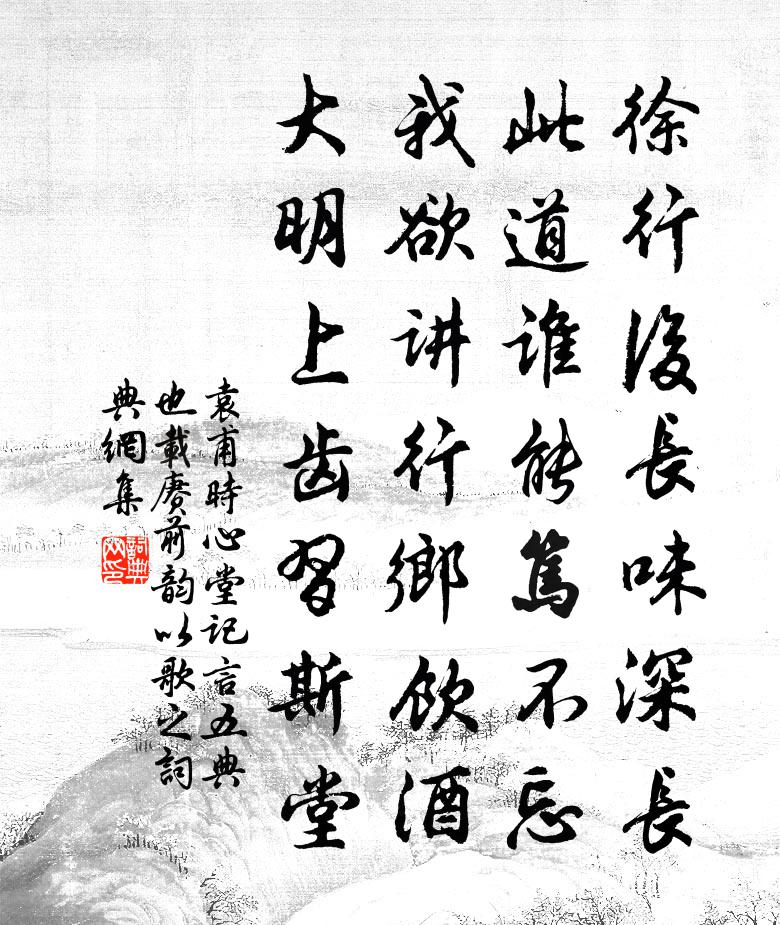 徐行後長味深長
此道谁能篤不忘
我欲讲行鄉飲酒
大明上齿習斯堂
袁甫時心堂記言五典
也載賡前韵以歌之詞
典網集
詞典網印